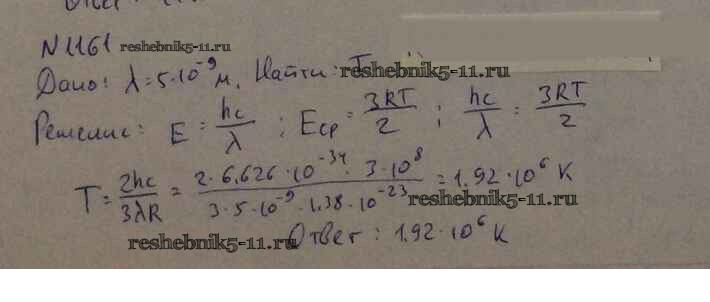 N 1161 reshebnik5-11.ru
Дано: λ = 5·10^-9 м. Найти: T reshebnik5-11.ru
Решение: E = hc/λ ; Eср = 3RT/2 ; hc/λ = 3RT/2
T = 2hc/3λR = 2·6,626·10^-34·3·10^8 / 3·5·10^-9·1,38·10^-23 = 1,92·10^6 K
reshebnik5-11.ru
reshebnik5-11.ru Ответ: 1,92·10^6 K